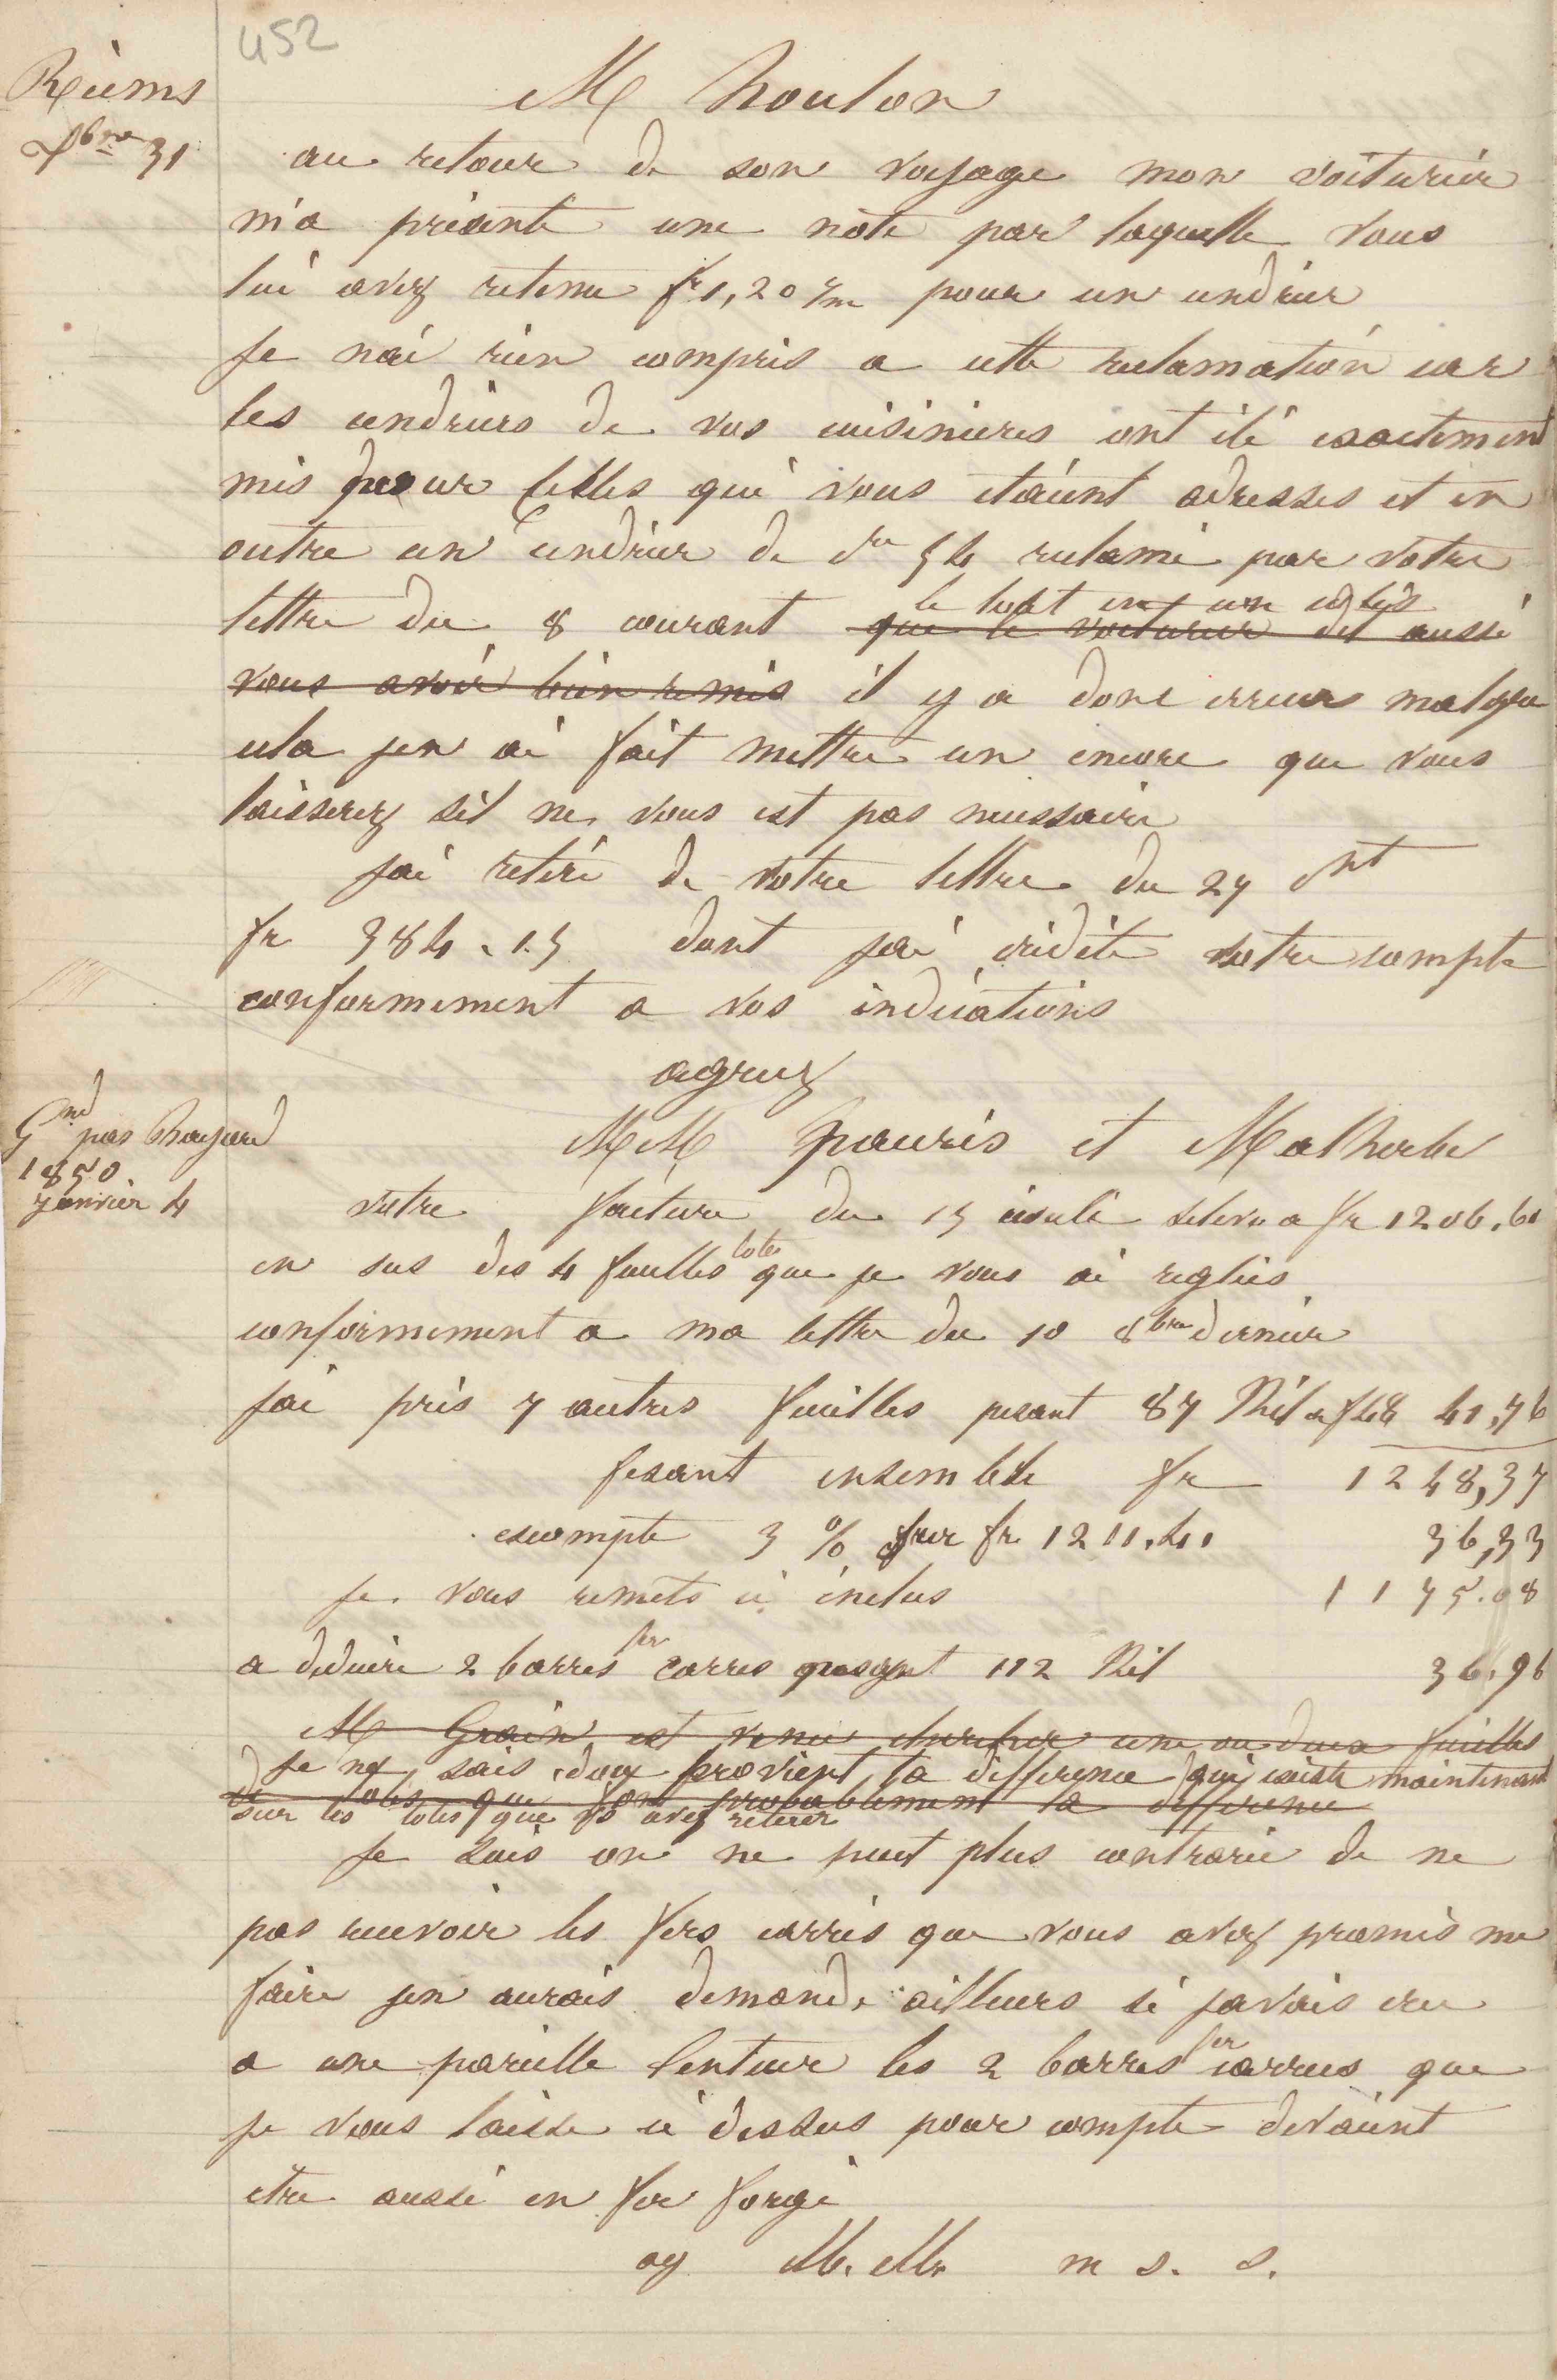 452
Reims
Xbre 31
M houlon
au retour de son voyage mon voiturier
m'a présenté une note par laquelle vous
lui avez retenu fr 1,20 pour un cendrier
Je n'ai rien compris a cette reclamation car
les cendriers de vos cuisinieres ont été exactement
mis pour celles qui vous etaient adresses et en
outre un cendrier de 54 reclamé par votre
le tout en un colis
lettre du 8 courant que le voiturier dit aussi
vous avoir bien remis il y a donc erreur malgre
cela jen ai fait mettre un encore que vous
laisserez sil ne vous est pas necessaire
jai retiré de votre lettre du 27 Ct
fr 384.15 dont jai crédité votre compte
conformement a vos indications
agreez
pas Bayard
1850
janvier 4
MM Gauris et Malherbe
votre facture du 15 écoulé seleve a fr 1206,61
en sus des 4 feuilles toles que je vous ai reglées
conformement a ma lettre du 10 8bre dernier
jai pris 7 autres feuilles pesant 87 Kil a f48 41,76
fesant ensemble fr 1248,37
escompte 3 % sur fr 1211,41 36,33
Je vous remets ci inclus 1175.08
a deduire 2 barres fer carres pesant 112 Kil 36,96
M Grain est venu chercher une ou deux feuilles
Je ne sais doux provient la difference qui existe maintenant
de toles que font probablement la difference
sur les toles que vs avez retirer
Je suis on ne peut plus contrarié de ne
pas recevoir les fers carrés que vous avez promis me
faire jen aurais demandé ailleurs si javais cru
a une pareille lenteur les 2 barres fer carrees que
je vous laisse ci dessus pour compte devaient
etre aussi en fer forgé
ag M. M. m s. s.